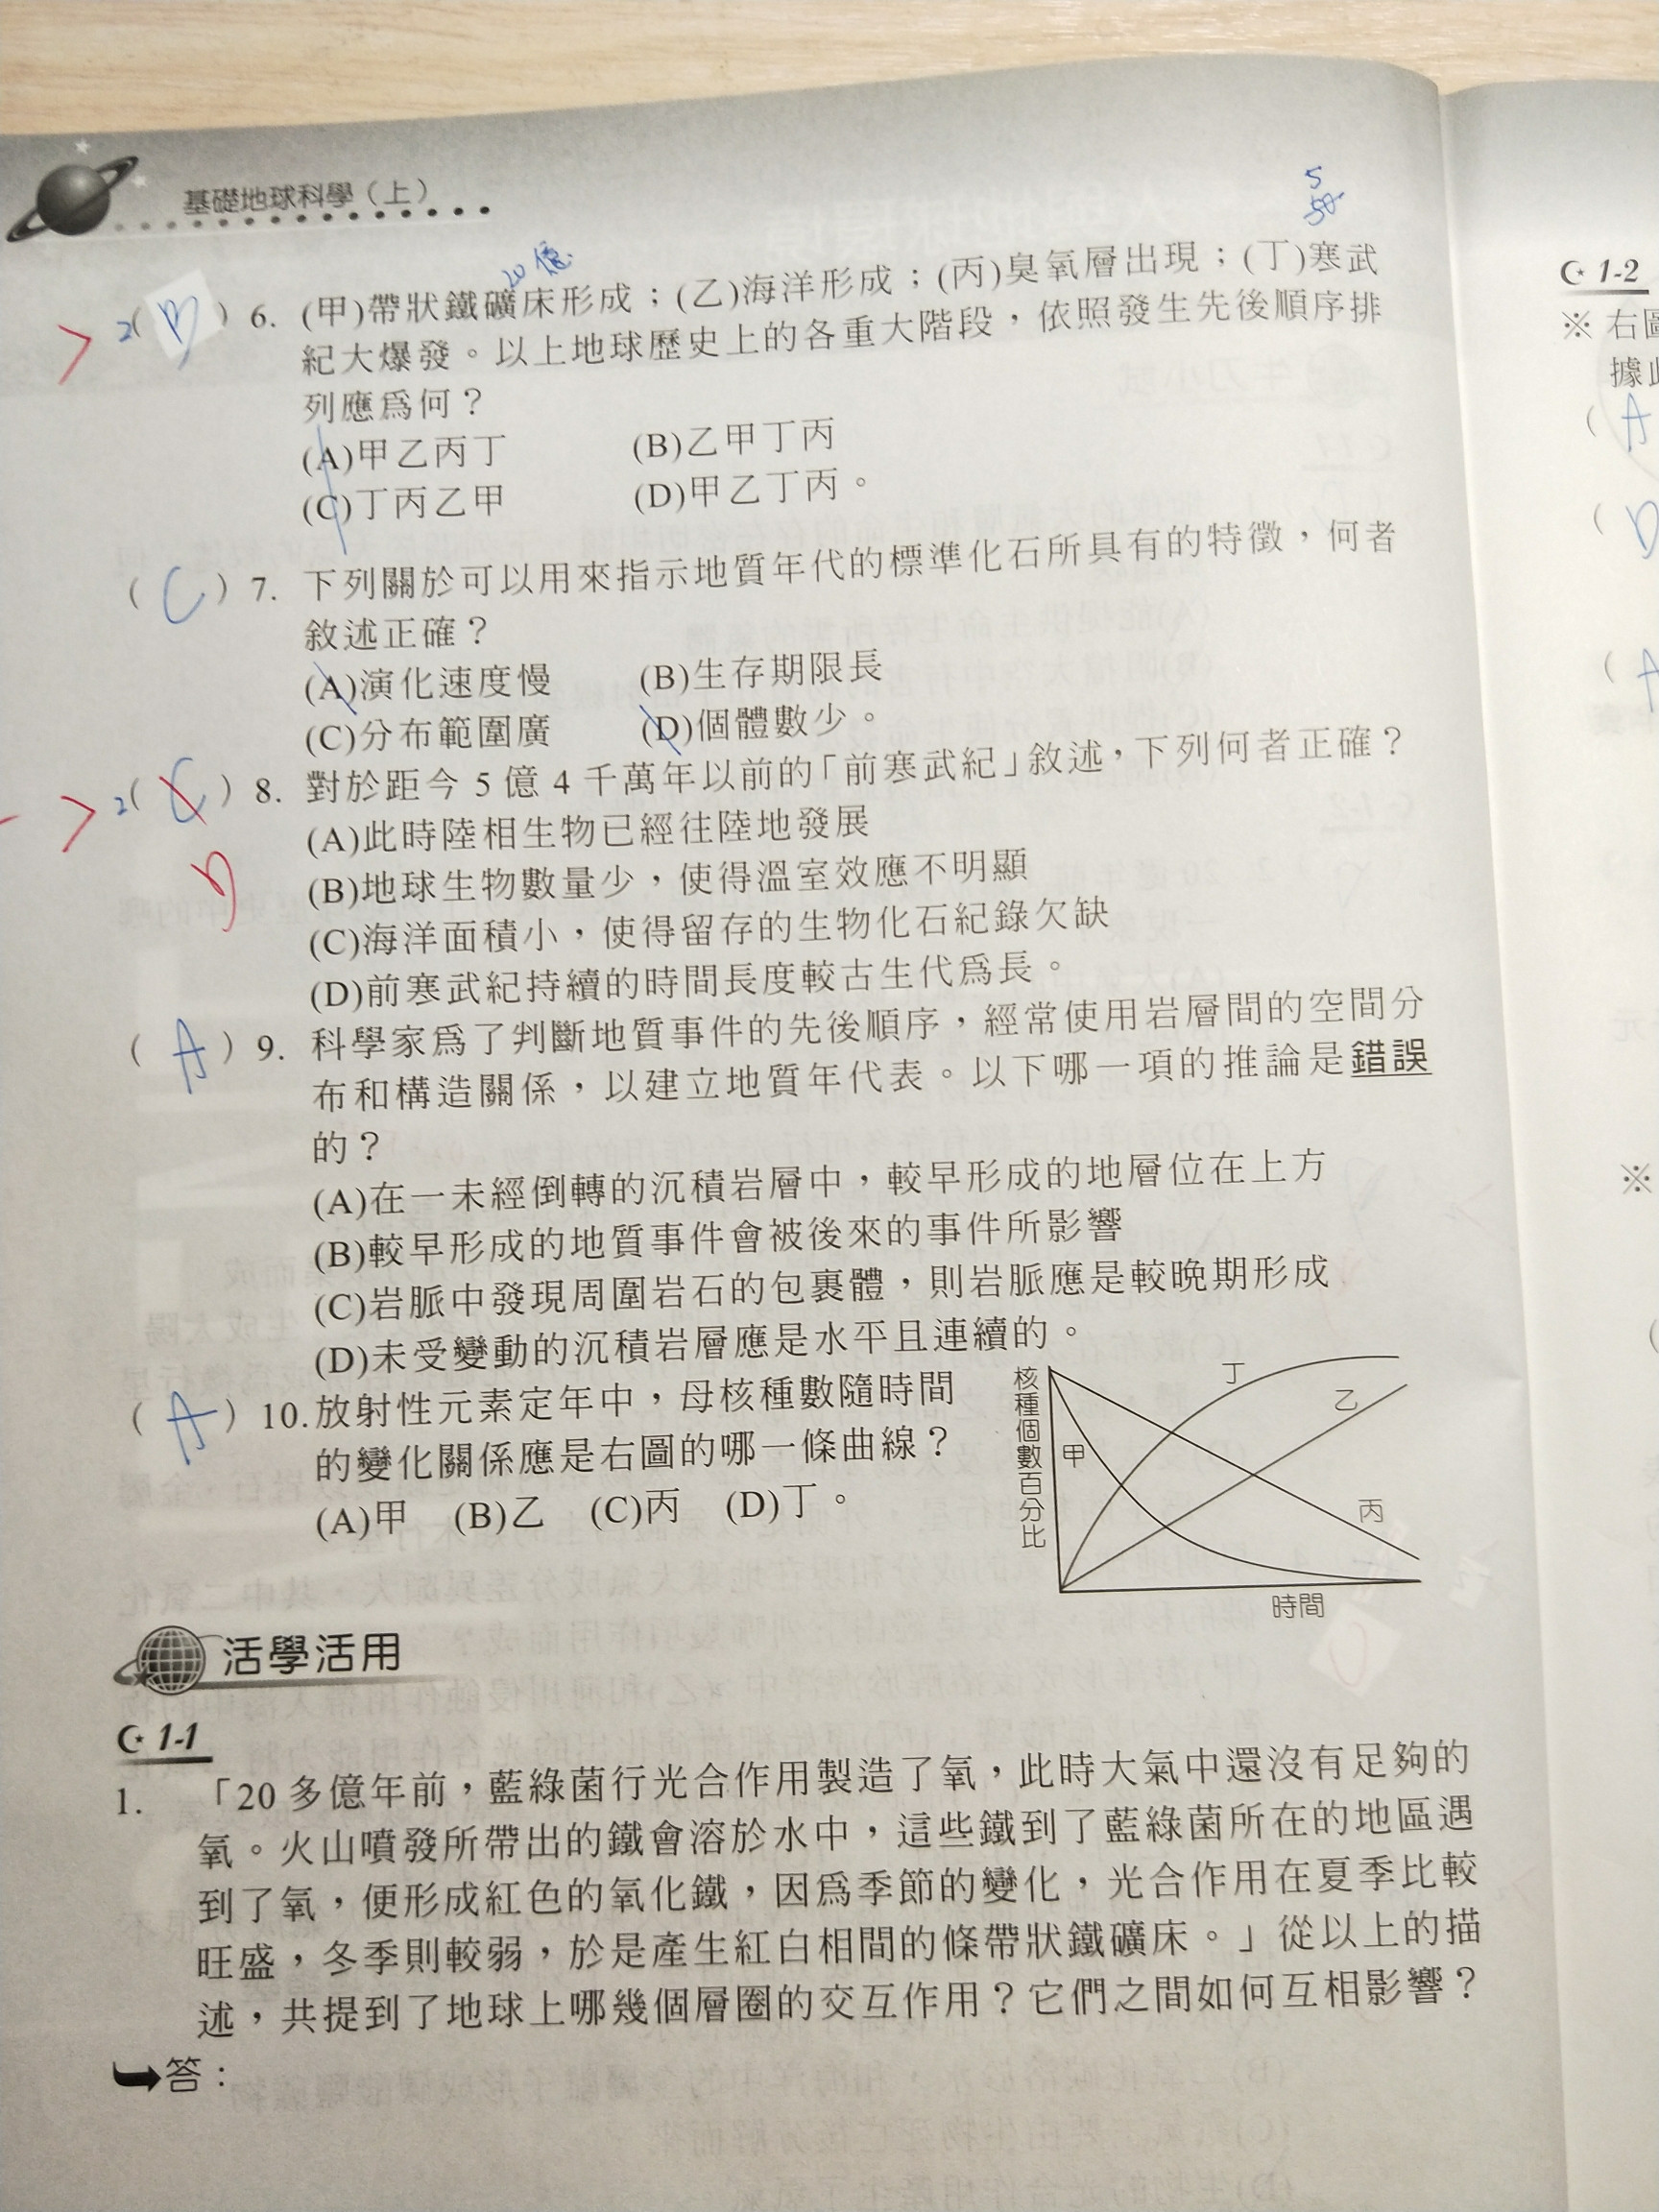 基礎地球科學（上）
5
20億
2( B ) 6. (甲)帶狀鐵礦床形成；(乙)海洋形成；(丙)臭氧層出現；(丁)寒武
紀大爆發。以上地球歷史上的各重大階段，依照發生先後順序排
列應為何？
(A)甲乙丙丁 (B)乙甲丁丙
(C)丁丙乙甲 (D)甲乙丁丙。
( C ) 7. 下列關於可以用來指示地質年代的標準化石所具有的特徵，何者
敘述正確？
(A)演化速度慢 (B)生存期限長
(C)分布範圍廣 (D)個體數少。
2( C ) 8. 對於距今 5 億 4 千萬年以前的「前寒武紀」敘述，下列何者正確？
(A)此時陸相生物已經往陸地發展
D
(B)地球生物數量少，使得溫室效應不明顯
(C)海洋面積小，使得留存的生物化石紀錄欠缺
(D)前寒武紀持續的時間長度較古生代為長。
( A ) 9. 科學家為了判斷地質事件的先後順序，經常使用岩層間的空間分
布和構造關係，以建立地質年代表。以下哪一項的推論是錯誤
的？
(A)在一未經倒轉的沉積岩層中，較早形成的地層位在上方
(B)較早形成的地質事件會被後來的事件所影響
(C)岩脈中發現周圍岩石的包裹體，則岩脈應是較晚期形成
(D)未受變動的沉積岩層應是水平且連續的。
( A ) 10.放射性元素定年中，母核種數隨時間
的變化關係應是右圖的哪一條曲線？
(A)甲 (B)乙 (C)丙 (D)丁。
核種個數百分比
甲
丁
乙
丙
時間
活學活用
1-1
1. 「20 多億年前，藍綠菌行光合作用製造了氧，此時大氣中還沒有足夠的
氧。火山噴發所帶出的鐵會溶於水中，這些鐵到了藍綠菌所在的地區遇
到了氧，便形成紅色的氧化鐵，因為季節的變化，光合作用在夏季比較
旺盛，冬季則較弱，於是產生紅白相間的條帶狀鐵礦床。」從以上的描
述，共提到了地球上哪幾個層圈的交互作用？它們之間如何互相影響？
答：
1-2
※ 右圖
據此
( A
( D
( A
※
(